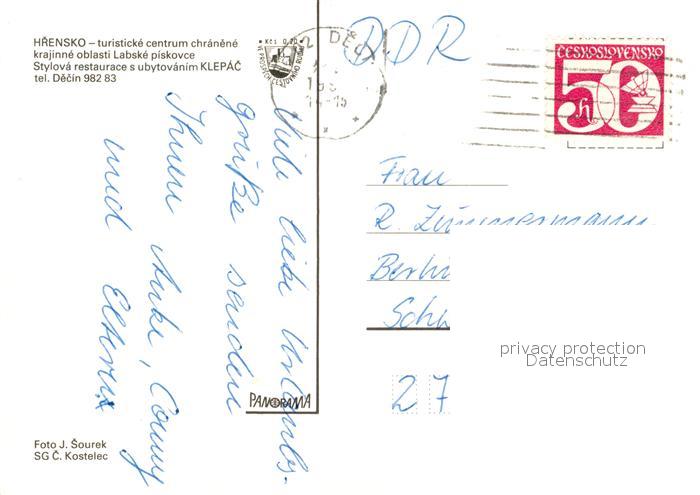 HŘENSKO – turistické centrum chráněné
krajinné oblasti Labské pískovce
Stylová restaurace s ubytováním KLEPÁČ
tel. Děčín 982 83
Kčs 0,20
2 DĚČ
DDR
ČESKOSLOVENSKO
50 h
Viele liebe Urlaubs-
grüße senden
Ihnen Anke, Conny
und Eltern
Frau
R. Zimmermann
Berli
Sch
27
privacy protection
Datenschutz
PANORAMA
Foto J. Šourek
SG Č. Kostelec